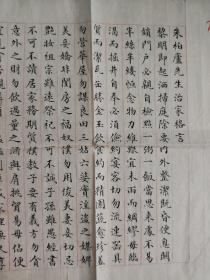 朱柏盧先生治家格言
黎明即起洒掃庭除要内外整潔既昏便息關
鎖門户必親自檢點一粥一飯當思來處不易
半絲半縷恒念物力維艱宜未雨而綢繆毋臨
渴而掘井自奉必須儉約宴客切勿流連器具
質而潔瓦缶勝金玉飲食約而精園蔬愈珍羞
勿營華屋勿謀良田三姑六婆實淫盜之媒婢
美妾嬌非閨房之福奴僕勿用俊美妻妾切忌
艷妝祖宗雖遠祭祀不可不誠子孫雖愚經書
不可不讀居家務期質樸教子要有義方勿貪
意外之財勿飲過量之酒與肩挑貿易毋佔便